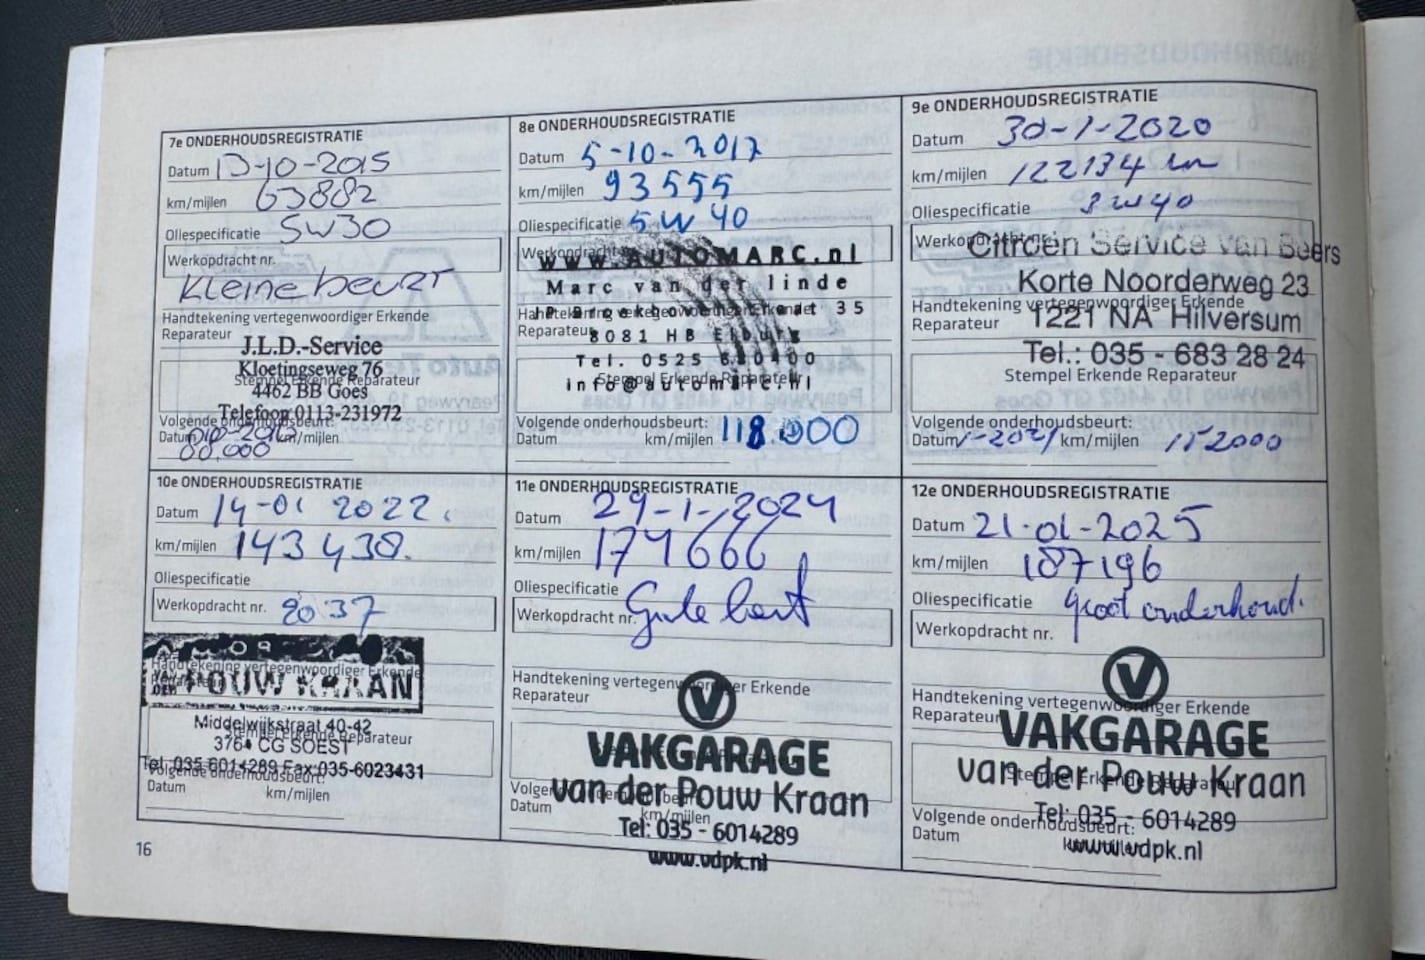 7e ONDERHOUDSREGISTRATIE
Datum 13-10-2015
km/mijlen 63882
Oliespecificatie 5W30
Werkopdracht nr.
Kleine beurt
Handtekening vertegenwoordiger Erkende
Reparateur
J.L.D.-Service
Kloetingseweg 76
Stempel Erkende Reparateur
4462 BB Goes
Telefoon 0113-231972
Volgende onderhoudsbeurt:
Datum km/mijlen
8e ONDERHOUDSREGISTRATIE
Datum 5-10-2017
km/mijlen 93555
Oliespecificatie 5W40
Werkopdracht nr.
www.AUTOMARC.nl
Marc van der linde
Handtekening vertegenwoordiger Erkende
35
Reparateur
8081 HB Elburg
Tel. 0525
Stempel Erkende Reparateur
info@automarc.nl
Volgende onderhoudsbeurt:
Datum km/mijlen 118.000
9e ONDERHOUDSREGISTRATIE
Datum 30-1-2020
km/mijlen 122134 km
Oliespecificatie 5W40
Werkopdracht nr.
Citroën Service van Beers
Korte Noorderweg 23
Handtekening vertegenwoordiger Erkende
Reparateur
1221 NA Hilversum
Tel.: 035 - 683 28 24
Stempel Erkende Reparateur
Volgende onderhoudsbeurt:
Datum 1-2021 km/mijlen 152000
10e ONDERHOUDSREGISTRATIE
Datum 14-01 2022.
km/mijlen 143 438.
Oliespecificatie
Werkopdracht nr. 2037
Handtekening vertegenwoordiger Erkende
Reparateur
VAN DER POUW KRAAN
Middelwijkstraat 40-42
Stempel Erkende Reparateur
3764 CG SOEST
Tel.035-6014289 Fax:035-6023431
Volgende onderhoudsbeurt:
Datum km/mijlen
11e ONDERHOUDSREGISTRATIE
Datum 29-1-2024
km/mijlen 174666
Oliespecificatie
Werkopdracht nr. Grote beurt
Handtekening vertegenwoordiger Erkende
Reparateur
V
VAKGARAGE
van der Pouw Kraan
Volgende onderhoudsbeurt:
Datum km/mijlen
Tel: 035 - 6014289
www.vdpk.nl
12e ONDERHOUDSREGISTRATIE
Datum 21-01-2025
km/mijlen 187196
Oliespecificatie groot onderhoud.
Werkopdracht nr.
Handtekening vertegenwoordiger Erkende
Reparateur
V
VAKGARAGE
van der Pouw Kraan
Stempel Erkende Reparateur
Tel: 035 - 6014289
Volgende onderhoudsbeurt:
Datum km/mijlen
www.vdpk.nl
16